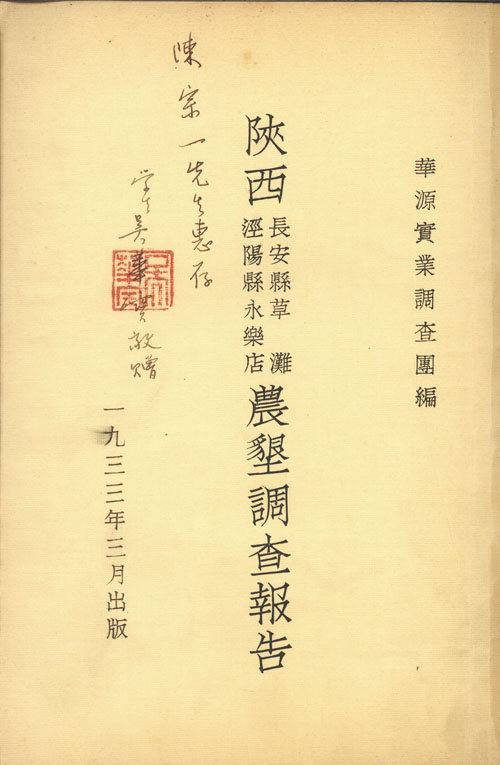 華源實業調查團編
陝西
長安縣草灘
涇陽縣永樂店
農墾調查報告
陳宗一先生惠存
学生吳華寶敬贈
一九三三年三月出版